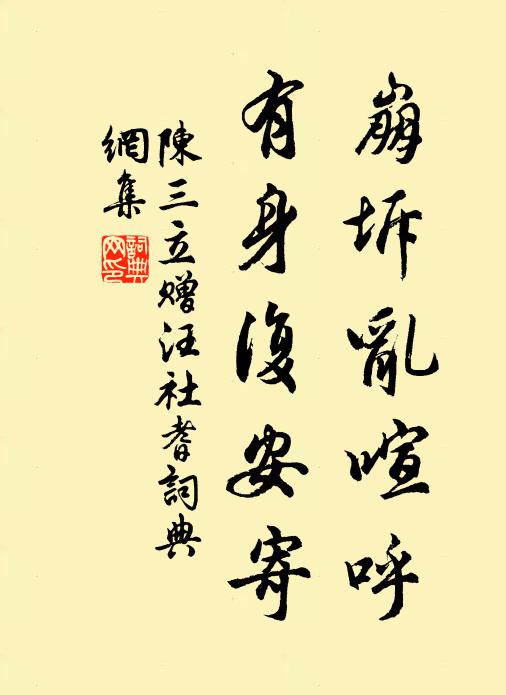 崩坼亂喧呼
有身復安寄
陳三立贈汪社耆詞典
網集
詞典网印